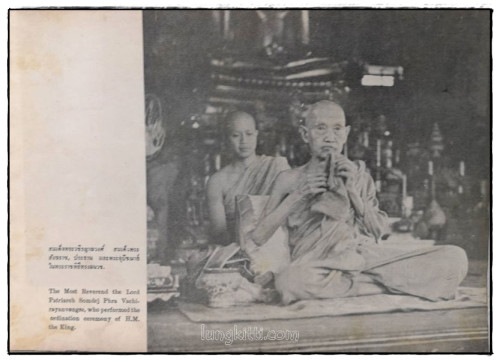 สมเด็จพระวชิรญาณวงศ์ สมเด็จพระ
สังฆราช, ประธาน และพระอุปัชฌาย์
ในพระราชพิธีทรงผนวช.
The Most Reverend the Lord
Patriarch Somdej Phra Vachi-
rayanvongse, who performed the
ordination ceremony of H.M.
the King.
lungkitti.com